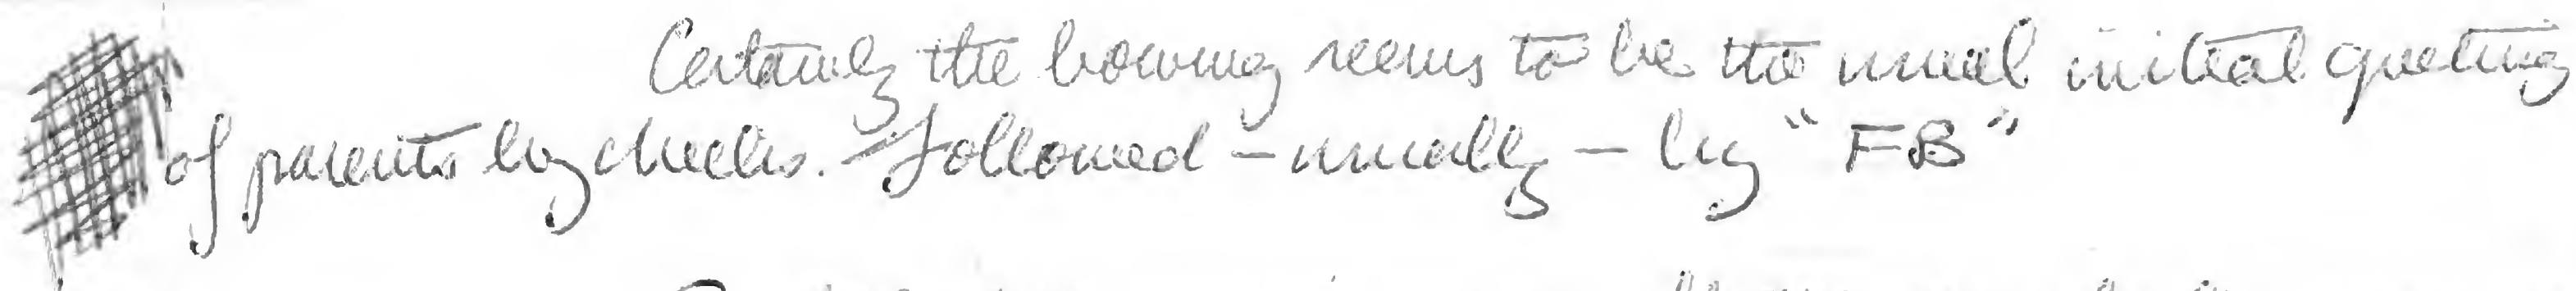 Certainly the bowing seems to be the usual initial greeting
of parents by chicks. Followed - usually - by "FB"